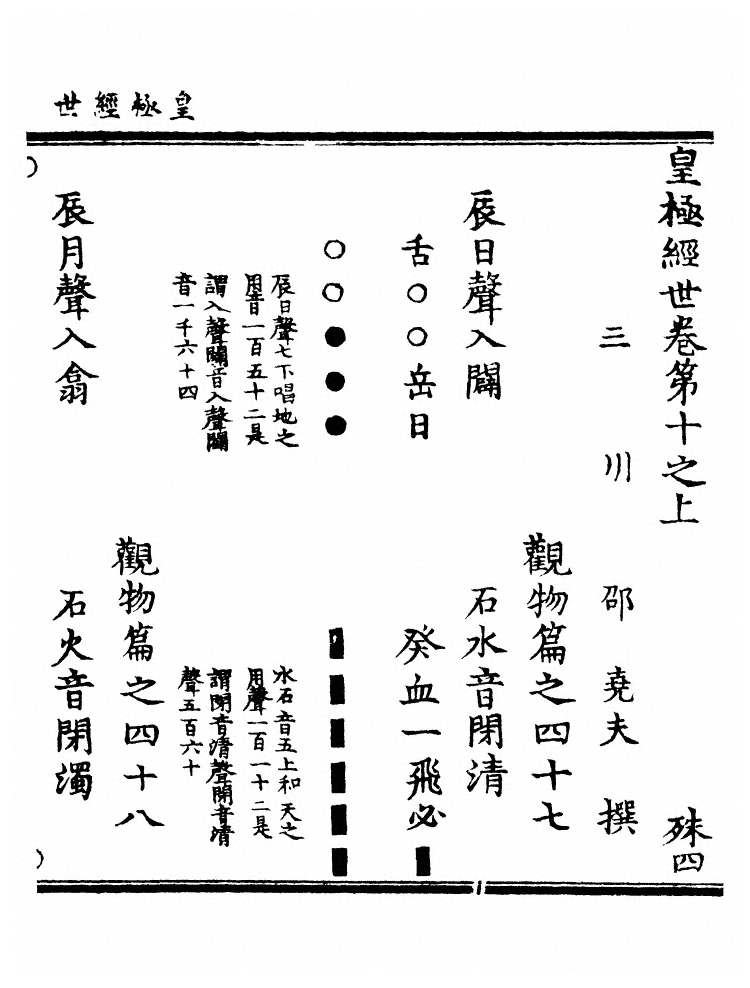 皇極經世
皇極經世卷第十之上 殊四
三川 邵堯夫 撰
觀物篇之四十七
辰日聲入闢 石水音閉清
舌○○岳日 癸血一飛必■
○○●●● ■■■■■■
辰日聲七下唱地之 水石音五上和天之
用音一百五十二是 用聲一百一十二是
謂入聲闢音入聲闢 謂閉音清聲閉音清
音一千六十四 聲五百六十
觀物篇之四十八
辰月聲入翕 石火音閉濁